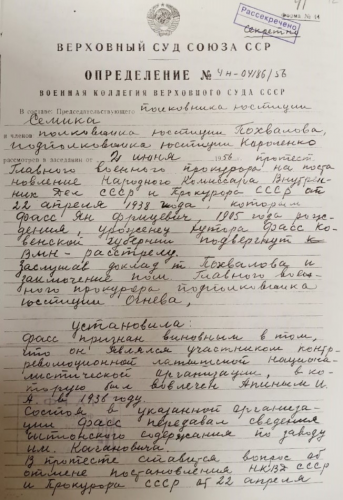 41
Рассекречено
Форма № 14
Секретно
ВЕРХОВНЫЙ СУД СОЮЗА ССР
ОПРЕДЕЛЕНИЕ № 4н-04186/56
ВОЕННАЯ КОЛЛЕГИЯ ВЕРХОВНОГО СУДА СССР
В составе: Председательствующего полковника юстиции
Семика
и членов полковника юстиции Похвалова,
подполковника юстиции Короленко
рассмотрев в заседании от 21 июня 1956 г. протест
Главного военного прокурора на поста-
новление Народного Комиссара Внутрен-
них Дел СССР и Прокурора СССР от
22 апреля 1938 года, которым
Фасс Ян Фрицевич, 1905 года рож-
дения, уроженец хутора Фасс Ко-
венской губернии подвергнут к
ВМН - расстрелу.
Заслушав доклад т. Похвалова и
заключение пом. Главного воен-
ного прокурора подполковника
юстиции Огнева,
установила:
Фасс признан виновным в том,
что он являлся участником контр-
революционной латышской национа-
листической организации, в ко-
торую был вовлечен Апиным И.
А. в 1936 году.
Состоя в указанной организа-
ции Фасс передавал сведения
шпионского содержания по заводу
им. Кагановича.
В протесте ставится вопрос об
отмене постановления НКВД СССР
и Прокурора СССР от 22 апреля